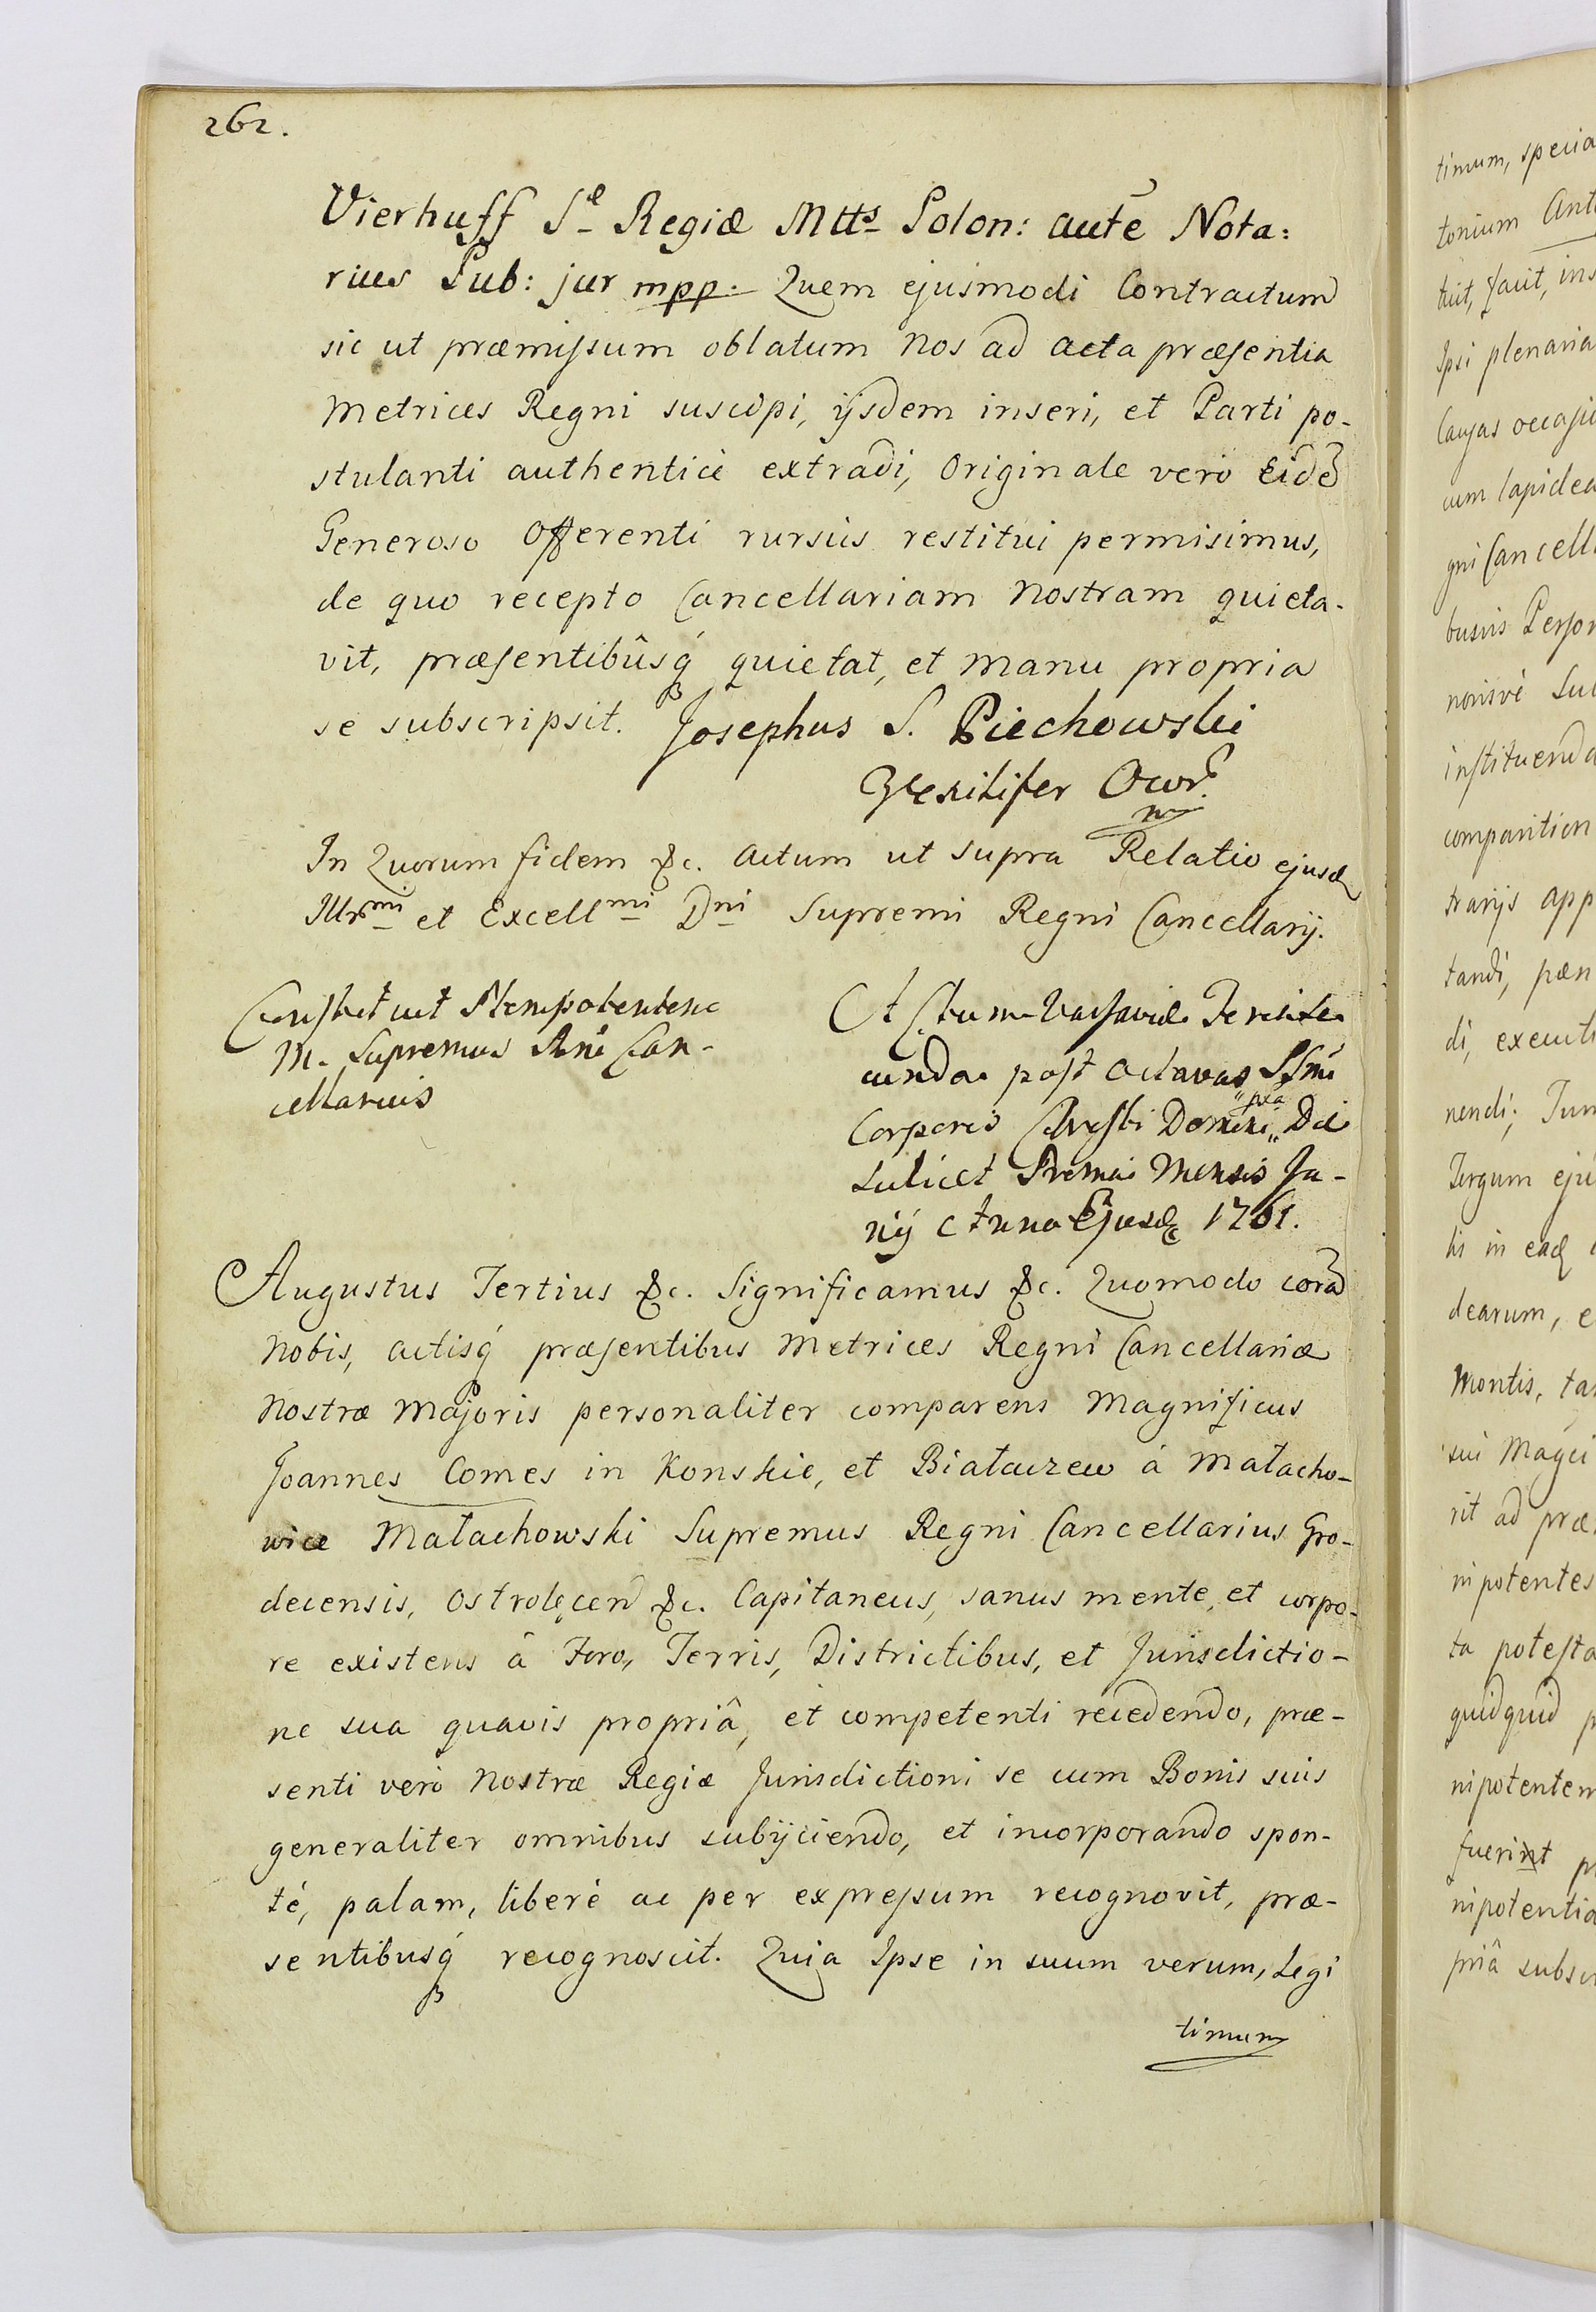 262.
Vierhuff S^æ Regiæ Mtts Polon: autē Nota:
rius Pub: jur mpp. Quem ejusmodi Contractum
sic ut præmissum oblatum Nos ad acta præsentia
Metrices Regni suscipi, ijsdem inseri, et Parti po-
stulanti authenticè extradi, Originale verò Eidē
Generoso Offerenti rursùs restitui permisimus,
de quo recepto Cancellariam Nostram quieta-
vit, præsentibûsq́ quietat, et Manu propria
se subscripsit. Josephus S. Piechowski
Vexilifer Owr.
mp
In Quorum fidem &c. Actum ut supra Relatio ejusd
Illr^mi et Excell^mi D^ni Supremi Regni Cancellarij.
Constituit Plenipotentem
M. Supremus Rni Can-
cellarius
Actum Varsaviæ Feria Se-
cunda post Octavas SSmi
Corporis Christi Domini „pxa„ Die
scilicet Prima Mensis Ju-
nij Anno Ejusd 1761.
Augustus Tertius &c. Significamus &c. Quomodo corā
Nobis, actisq́ præsentibus Metrices Regni Cancellariæ
Nostræ Majoris personaliter comparens Magnificus
Joannes Comes in Konskie, et Białaczew à Małacho-
wice Małachowski Supremus Regni Cancellarius Gro-
decensis, Ostrołęcen &c. Capitaneus, sanus mente, et corpo-
re existens â Foro, Terris, Districtibus, et Jurisdictio-
ne sua quavis propriâ, et competenti recedendo, præ-
senti verò Nostræ Regiæ Jurisdictioni se cum Bonis suis
generaliter omnibus subijciendo, et incorporando spon-
té, palam, liberè ac per expressum recognovit, præ-
sentibusq́ recognoscit. Quia Ipse in suum verum, Legi
timum
timum, specia
tonium Ant
tuit, facit, ins
Ipsi plenaria
Causas occasio
cum lapidea
gni Cancell
busvis Person
norisvè Suc
instituenda
comparition
trarijs app
tandi, pæn
di, executi
nendi; Tum
Tergum eju
lis in ead
dearum, e
Montis, ta
sui Magci
rit ad præ
nipotentes
ta potesta
quidquid p
nipotentem
fuerint p
nipotentia
priâ subscr